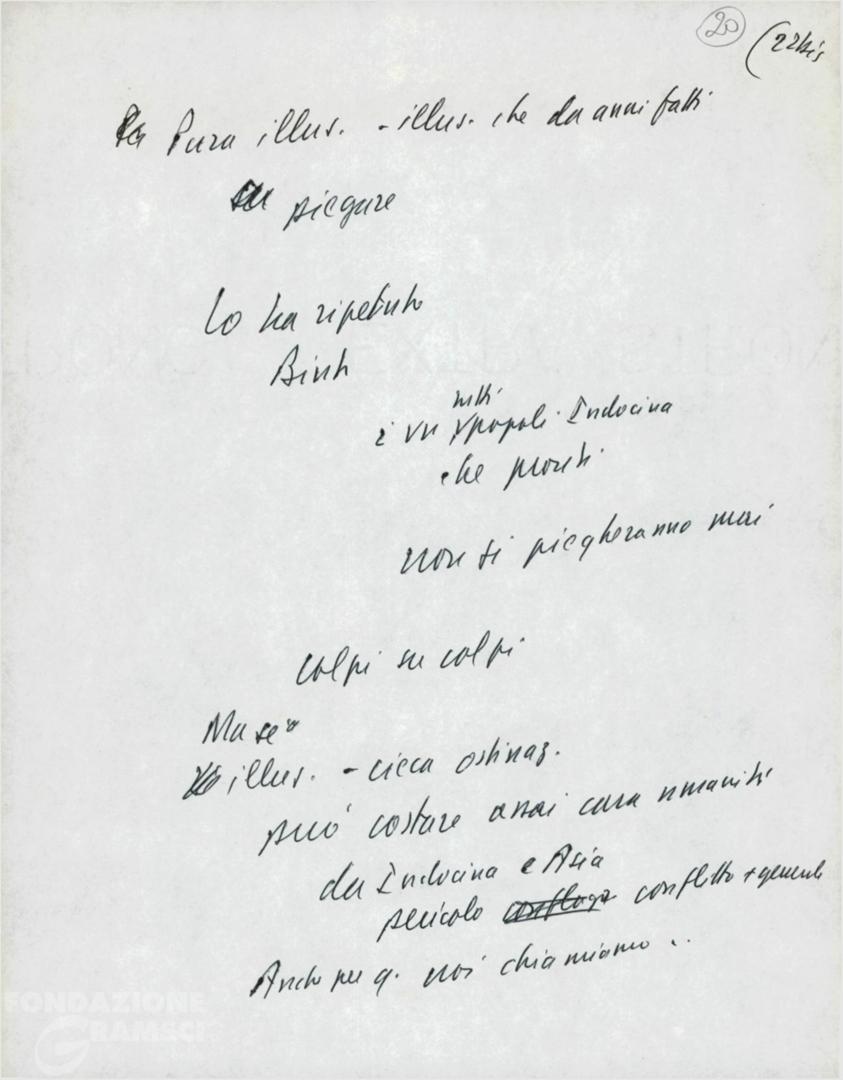 20 (22bis
Pura illus. - illus. che da anni fatti
piegare
lo ha ripetuto
Binh
tutti
i VN popoli Indocina
che
non si piegheranno mai
colpi su colpi
Ma se
illus. - cieca ostinaz.
può costare assai cara umanità
da Indocina e Asia
pericolo conflitto + generale
Anche per q. noi chiamiamo ..
FONDAZIONE
GRAMSCI